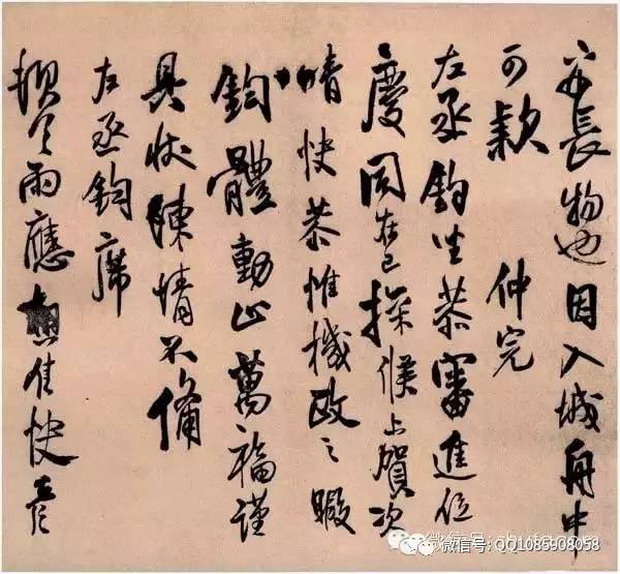 長物也因入城舟中
可款 仲完
左丞鈞坐恭審進位
慶同在己探候上賀次
晴快恭惟機政之暇
鈞體動止萬福謹
具狀陳情不備
左丞鈞席
雨應佳快
微信号: QQ1085908058